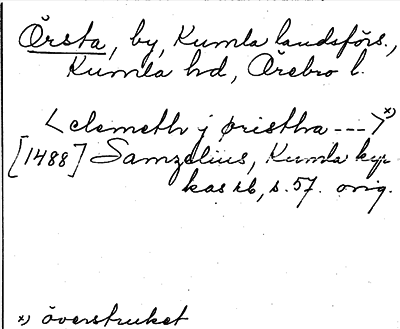 Örsta, by, Kumla landsförs.,
Kumla hd, Örebro l.
<elemeth j øristha --->x)
[1488] Samzelius, Kumla kyr-
kas rb, s. 57. orig.
x) överstruket